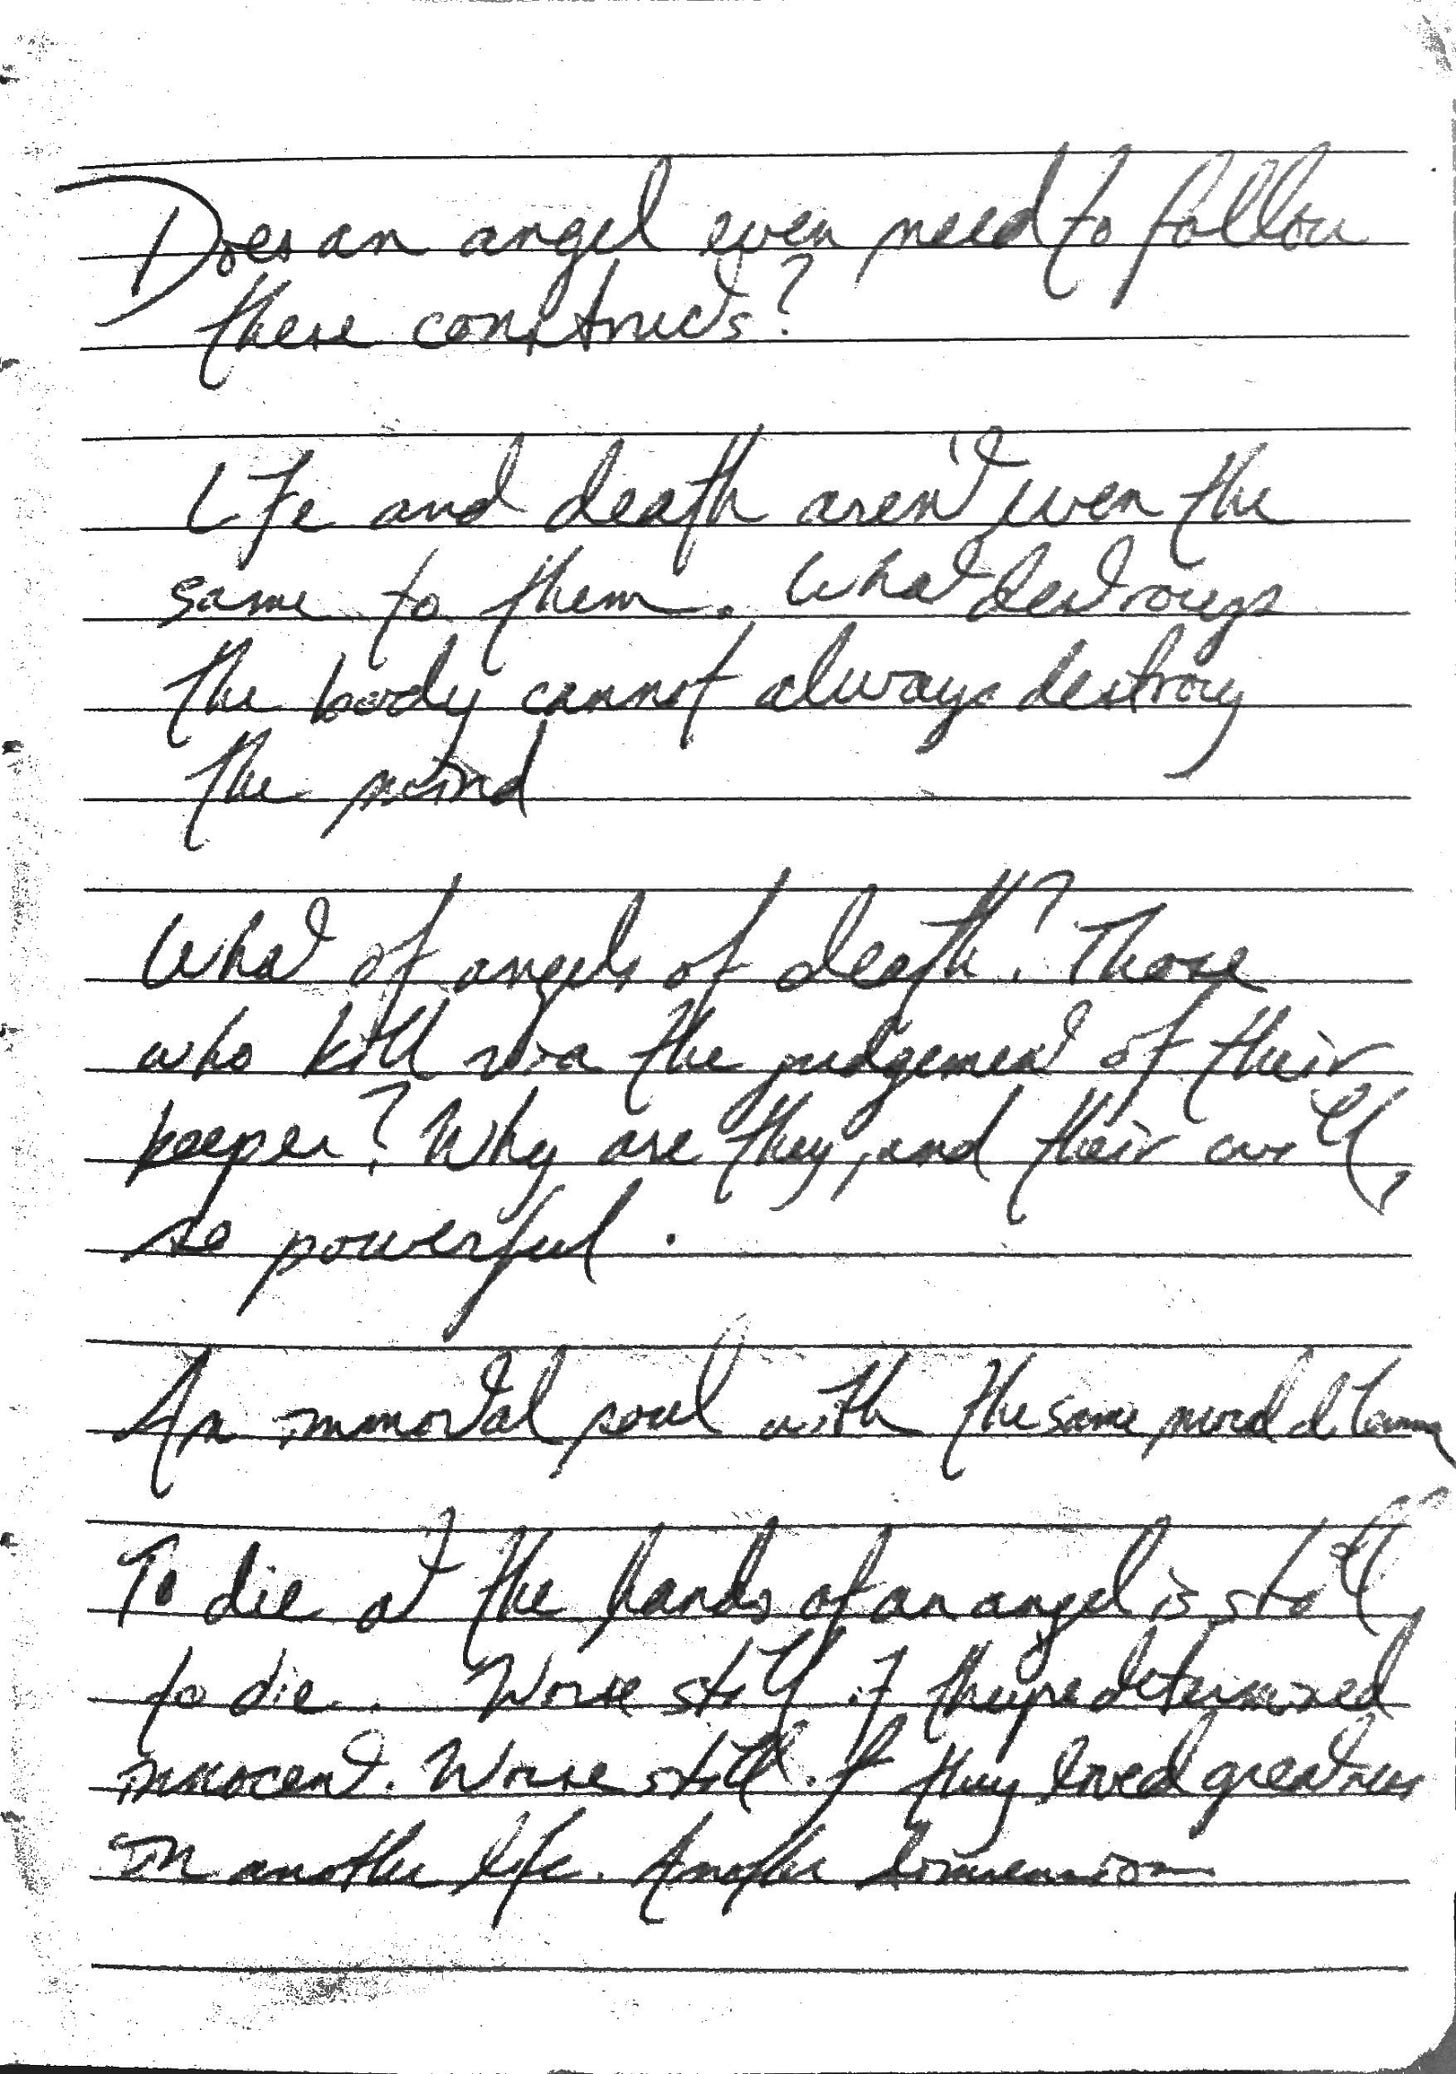 Does an angel even need to follow
these constructs?
Life and death aren't even the
same to them. What destroys
the body cannot always destroy
the mind
What of angels of death? Those
who kill via the judgement of their
keeper? Why are they, and their will,
so powerful.
An immortal soul with the same moral dilemma
To die at the hands of an angel is still
to die. Worse still if they're determined
innocent. Worse still if they loved greatness
in another life. Another dimension